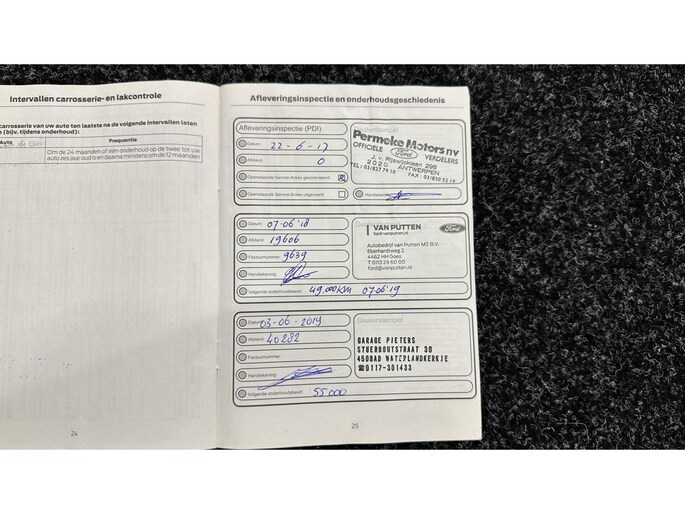 Intervallen carrosserie- en lakcontrole
carrosserie van uw auto ten laatste na de volgende intervallen laten
(bijv. tijdens onderhoud):
Auto
Frequentie
Om de 24 maanden of één onderhoud op de twee tot uw
auto zes jaar oud is en daarna minstens om de 12 maanden
24
Afleveringsinspectie en onderhoudsgeschiedenis
Afleveringsinspectie (PDI)
Datum: 22-6-17
Afstand: 0
Openstaande Service Acties gecontroleerd:
Openstaande Service Acties uitgevoerd:
Dealerstempel
Permeke Motors nv
OFFICIËLE Ford VERDELERS
J. v. Rijswijcklaan 298
2020 ANTWERPEN
TEL: 03/827 79 10 FAX: 03/830 32 19
Handtekening:
Datum: 07-06'18
Afstand: 19606
Factuurnummer: 9639
Handtekening:
Volgende onderhoudsbeurt: 49.000KM 07.06'19
VAN PUTTEN
ford-vanputten.nl
Ford
Autobedrijf van Putten MZ B.V.
Eberhardtweg 2
4462 HH Goes
T 0113 29 60 00
ford@vanputten.nl
Datum: 03-06-2019
Afstand: 40282
Factuurnummer:
Handtekening:
Volgende onderhoudsbeurt: 55000
Dealerstempel
GARAGE PIETERS
STUERBOUTSTRAAT 30
4508AD WATERLANDKERKJE
☎0117-301433
25